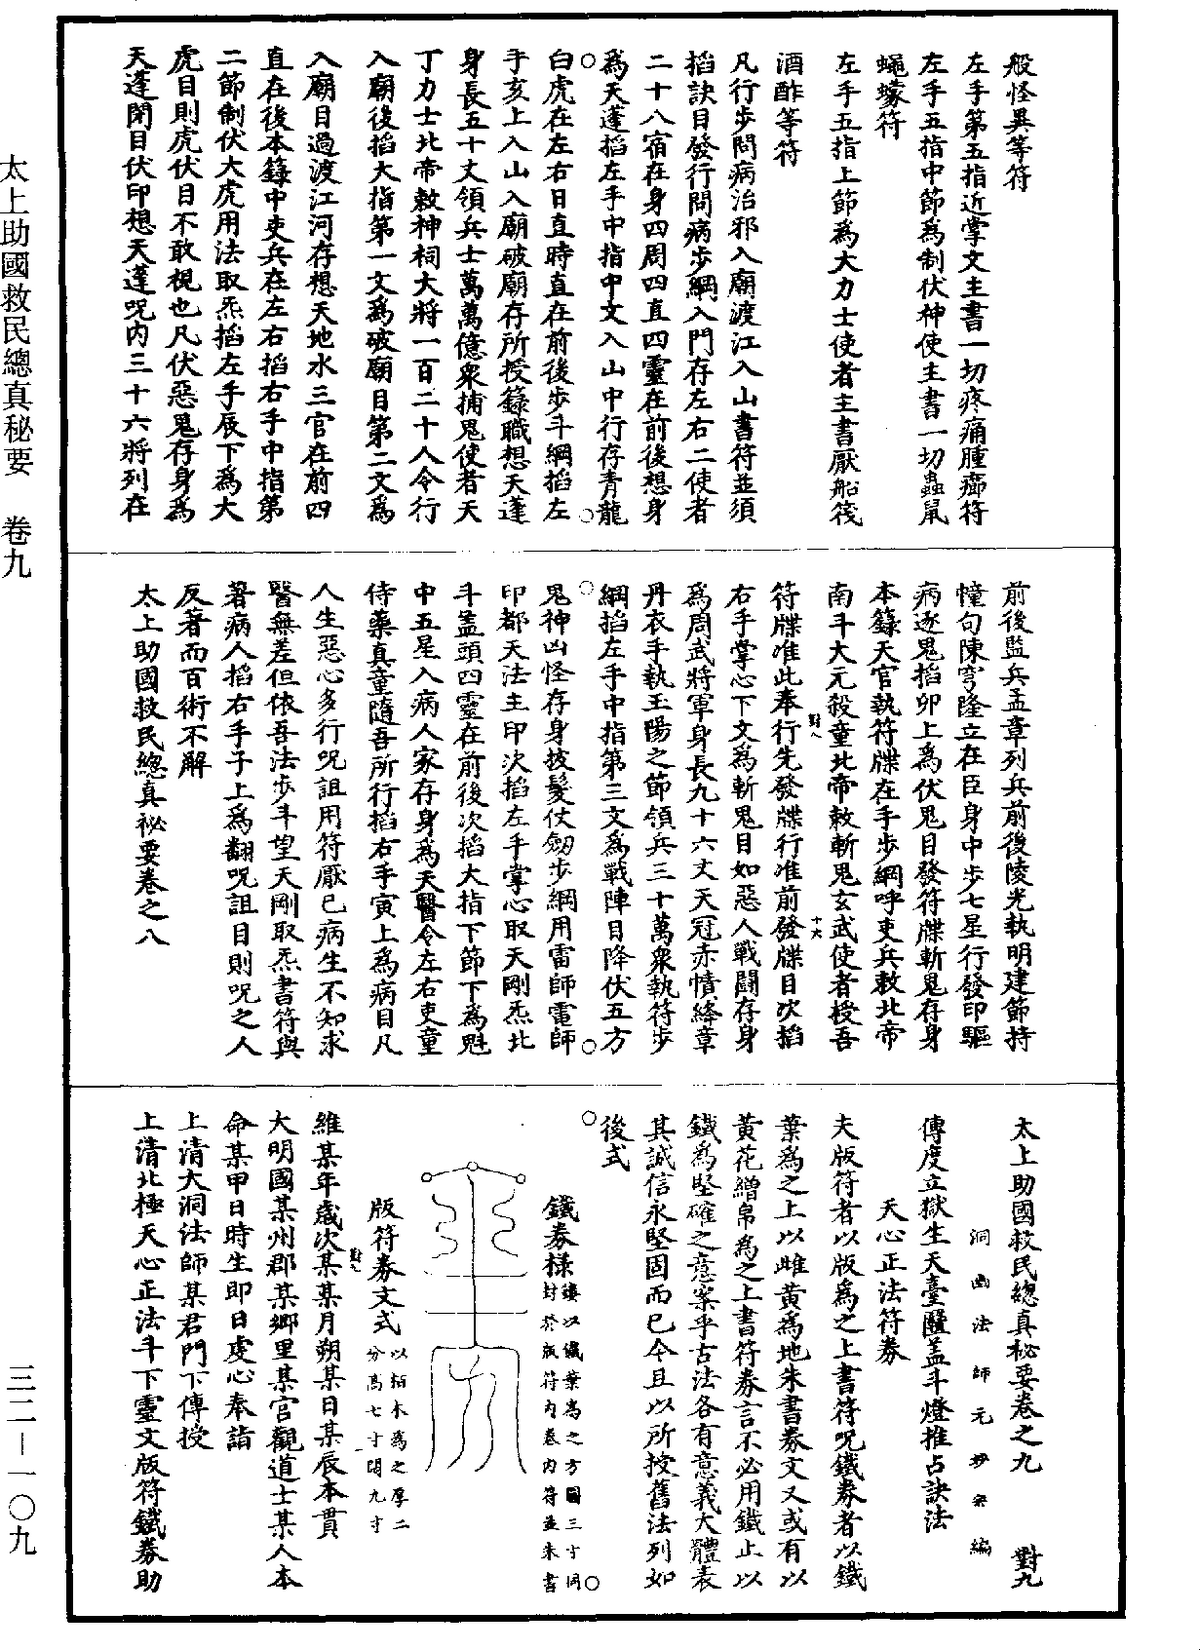 般怪異等符
左手第五指近掌文主書一切疼痛腫癤符
左手五指中節為制伏神使主書一切蟲鼠
蠅蠓符
左手五指上節為大力士使者主書厭船筏
酒酢等符
凡行步問病治邪入廟渡江入山書符並須
掐訣目發行問病步綱入門存左右二使者
二十八宿在身四周四直四靈在前後想身
為天蓬掐左手中指中文入山中行存青龍
白虎在左右日直時直在前後步斗綱掐左
手亥上入山入廟破廟存所授籙職想天蓬
身長五十丈領兵士萬萬億眾捕鬼使者天
丁力士北帝敕神祠大將一百二十人令行
入廟後掐大指第一文為破廟目第二文為
入廟目過渡江河存想天地水三官在前四
直在後本籙中吏兵在左右掐右手中指第
二節制伏大虎用法取炁掐左手辰下為大
虎目則虎伏目不敢視也凡伏惡鬼存身為
天蓬閉目伏印想天蓬呪內三十六將列在
前後監兵孟章列兵前後陵光執明建節持
幢句陳穹隆立在臣身中步七星行發印驅
病逐鬼掐卯上為伏鬼目發符牒斬鬼存身
本籙天官執符牒在手步綱呼吏兵敕北帝
南斗大元殺童北帝敕斬鬼玄武使者授吾
符牒准此奉行先發牒行准前發牒目次掐
對八 十六
右手掌心下文為斬鬼目如惡人戰鬭存身
為周武將軍身長九十六丈天冠赤幘絳章
丹衣手執玉陽之節領兵三十萬眾執符步
綱掐左手中指第三文為戰陣目降伏五方
鬼神凶怪存身披髮仗劒步綱用雷師電師
印都天法主印次掐左手掌心取天剛炁北
斗盖頭四靈在前後次掐大指下節下為魁
中五星入病人家存身為天醫令左右吏童
侍藥真童隨吾所行掐右手寅上為病目凡
人生惡心多行呪詛用符厭已病生不知求
醫無差但依吾法步斗望天剛取炁書符與
著病人掐右手子上為翻呪詛目則呪之人
反著而百術不解
太上助國救民總真祕要卷之八
太上助國救民總真祕要卷之九 對九
洞幽法師元妙宗編
傳度立獄生天臺醮盖斗燈推占訣法
天心正法符券
夫版符者以版為之上書符呪鐵券者以鐵
葉為之上以雌黃為地朱書券文又或有以
黃花繒帛為之上書符券言不必用鐵止以
鐵為堅確之意案乎古法各有意義大體表
其誠信永堅固而已今且以所授舊法列如
後式
鐵券樣 鏤以鐵葉為之方圓三寸同
封於版符內卷內符並朱書
版符券文式 以栢木為之厚二
分高七寸闊九寸
維某年歲次某某月朔某日某辰本貫
對九
大明國某州郡某鄉里某官觀道士某人本
命某甲日時生即日虔心奉詣
上清大洞法師某君門下傳授
上清北極天心正法斗下靈文版符鐵券助
太上助國救民總真秘要 卷九
三二—一〇九